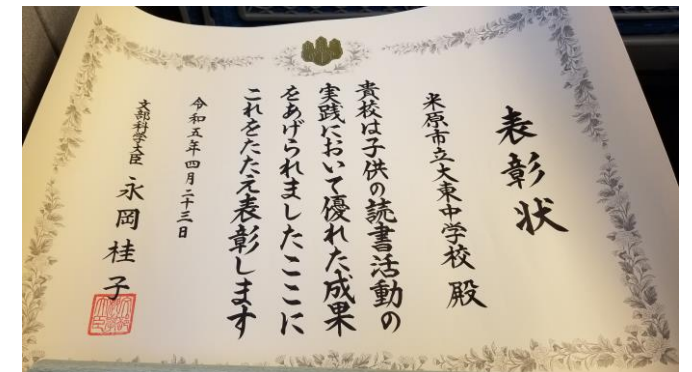 表彰状
米原市立大東中学校 殿
貴校は子供の読書活動の
実践において優れた成果
をあげられましたここに
これをたたえ表彰します
令和五年四月二十三日
文部科学大臣 永岡桂子